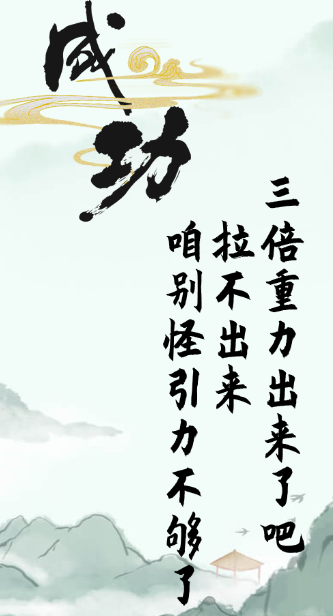 成功
三倍重力出来了吧
拉不出来
咱别怪引力不够了